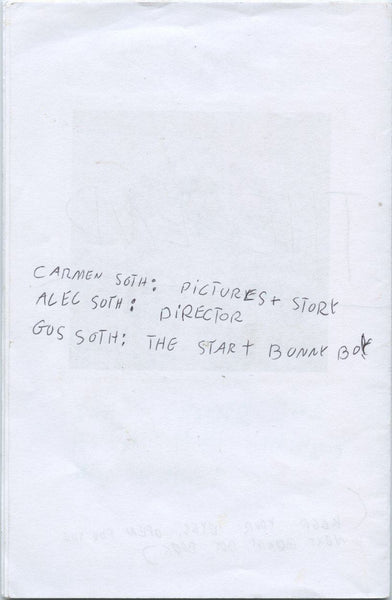 CARMEN SOTH: PICTURES + STORY
ALEC SOTH: DIRECTOR
GUS SOTH: THE STAR + BUNNY BOY